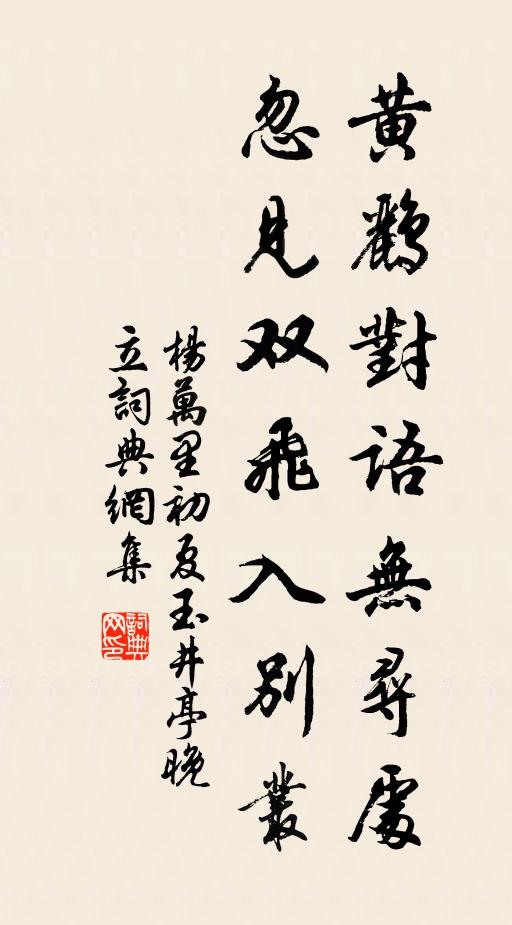 黃鸝對語無尋處
忽見双飛入別叢
楊萬里初夏玉井亭晚
立詞典網集
詞典
网印